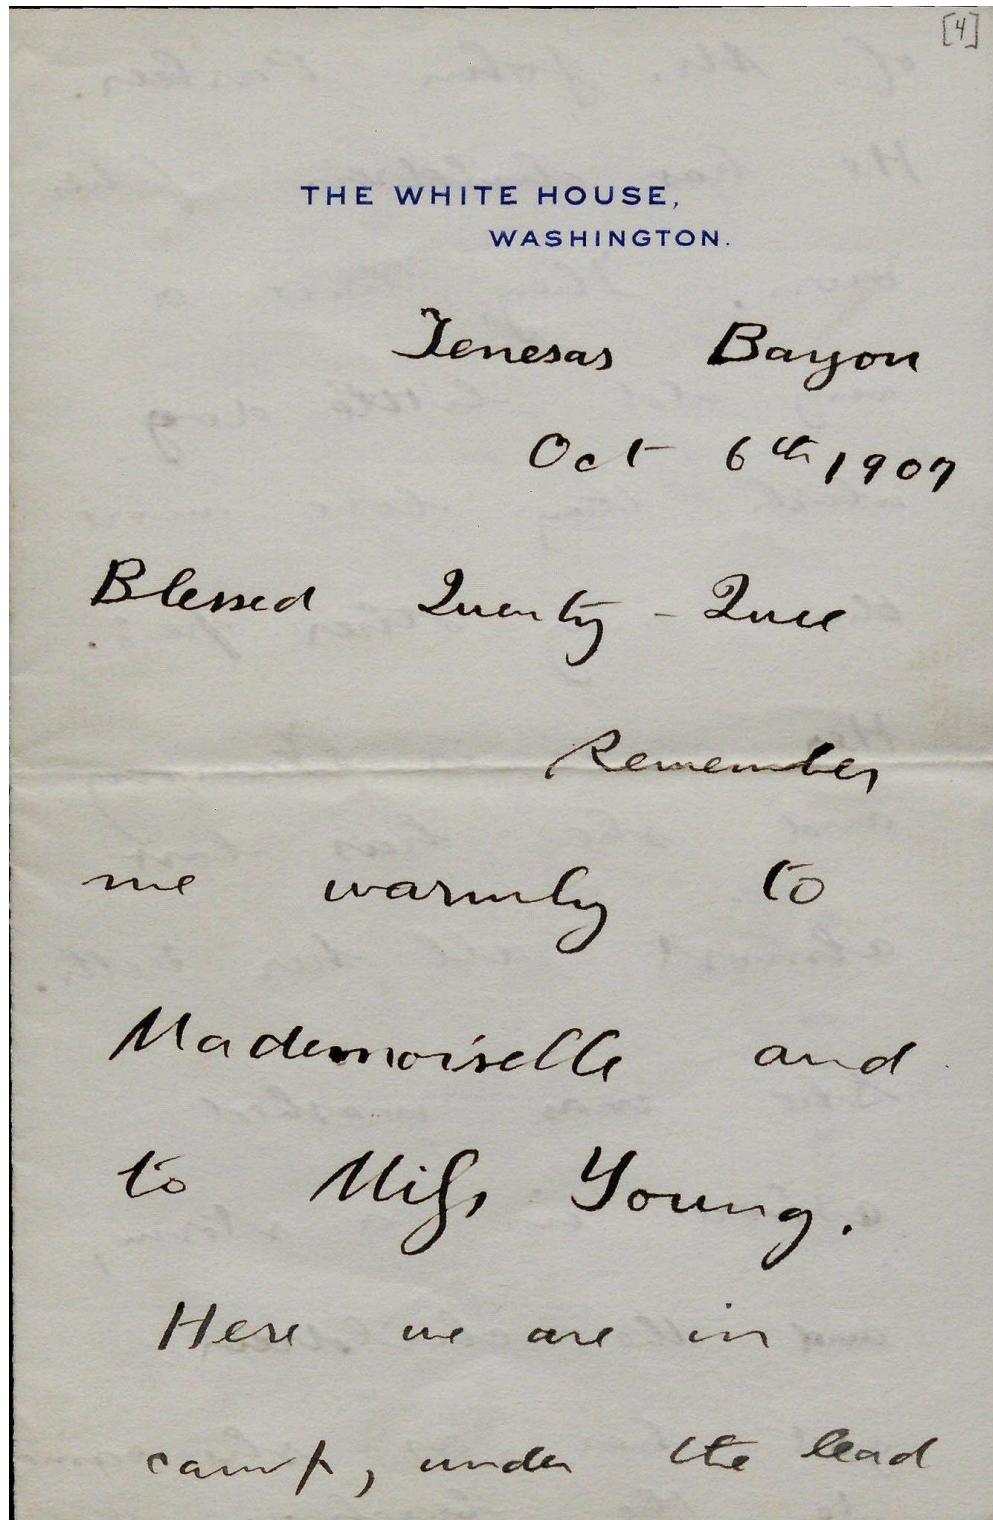 [4]
THE WHITE HOUSE,
WASHINGTON.
Tenesas Bayou
Oct 6th 1907
Blessed Quenty-Quee
Remember
me warmly to
Mademoiselle and
to Miss Young.
Here we are in
camp, under the lead